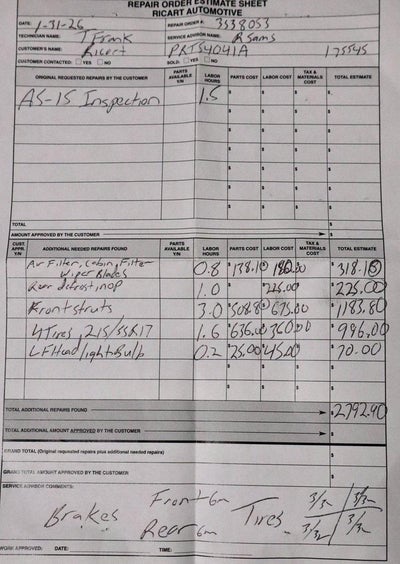 REPAIR ORDER ESTIMATE SHEET
RICART AUTOMOTIVE
DATE: 1-31-26 REPAIR ORDER #: 3538053
TECHNICIAN NAME: T Frank SERVICE ADVISOR NAME: R Sams
CUSTOMER'S NAME: Ricart PRTS4041A 175545
CUSTOMER CONTACTED: YES NO SOLD: YES NO
ORIGINAL REQUESTED REPAIRS BY THE CUSTOMER PARTS AVAILABLE Y/N LABOR HOURS PARTS COST LABOR COST TAX & MATERIALS COST TOTAL ESTIMATE
AS-IS Inspection 1.5 $ $ $
$ $ $
$ $ $
$ $ $
$ $ $
$ $ $
$ $ $
TOTAL $
AMOUNT APPROVED BY THE CUSTOMER $
CUST. APPR. Y/N ADDITIONAL NEEDED REPAIRS FOUND PARTS AVAILABLE Y/N LABOR HOURS PARTS COST LABOR COST TAX & MATERIALS COST TOTAL ESTIMATE
Air Filter, Cabin Filter
Wiper Blades 0.8 $138.10 $180.00 $318.10
Rear defrost inop 1.0 $ $225.00 $225.00
Front struts 3.0 $508.80 $675.00 $1183.80
4 Tires, 215/55R17 1.6 $636.00 $360.00 $996.00
LF Headlight Bulb 0.2 $25.00 $45.00 $70.00
$ $ $
$ $ $
TOTAL ADDITIONAL REPAIRS FOUND $2792.90
TOTAL ADDITIONAL AMOUNT APPROVED BY THE CUSTOMER $
GRAND TOTAL (Original requested repairs plus additional needed repairs) $
GRAND TOTAL AMOUNT APPROVED BY THE CUSTOMER $
SERVICE ADVISOR COMMENTS:
Brakes Front 6m Tires 3/32 3/32
Rear 6m 3/32 3/32
WORK APPROVED: DATE: TIME: